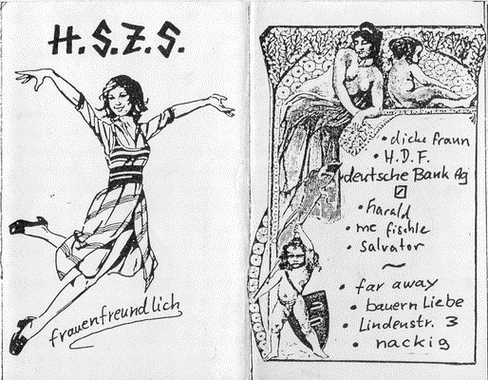 H.S.Z.S.
frauenfreundlich
• dicke fraun
• H.D.F.
deutsche Bank Ag
• harald
• mc fischle
• salvator
~
• far away
• bauern Liebe
• Lindenstr. 3
• nackig